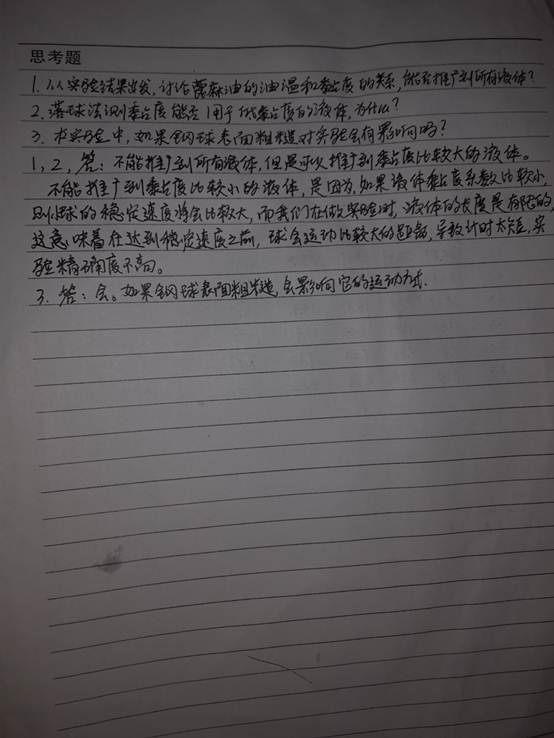 思考题
1. 从实验结果出发,讨论蓖麻油的油温和黏度的关系,能否推广到所有液体?
2. 落球法测黏度能否用于低黏度的液体,为什么?
3. 本实验中,如果钢球表面粗糙对实验会有影响吗?
1,2,答:不能推广到所有液体,但是可以推广到黏度比较大的液体。
不能推广到黏度比较小的液体,是因为,如果液体黏度系数比较小,
则小球的稳定速度将会比较大,而我们在做实验时,液体的长度是有限的,
这意味着在达到稳定速度之前,球会运动比较大的距离,导致计时太短,实
验精确度不高。
3. 答:会。如果钢球表面粗糙,会影响它的运动方式.